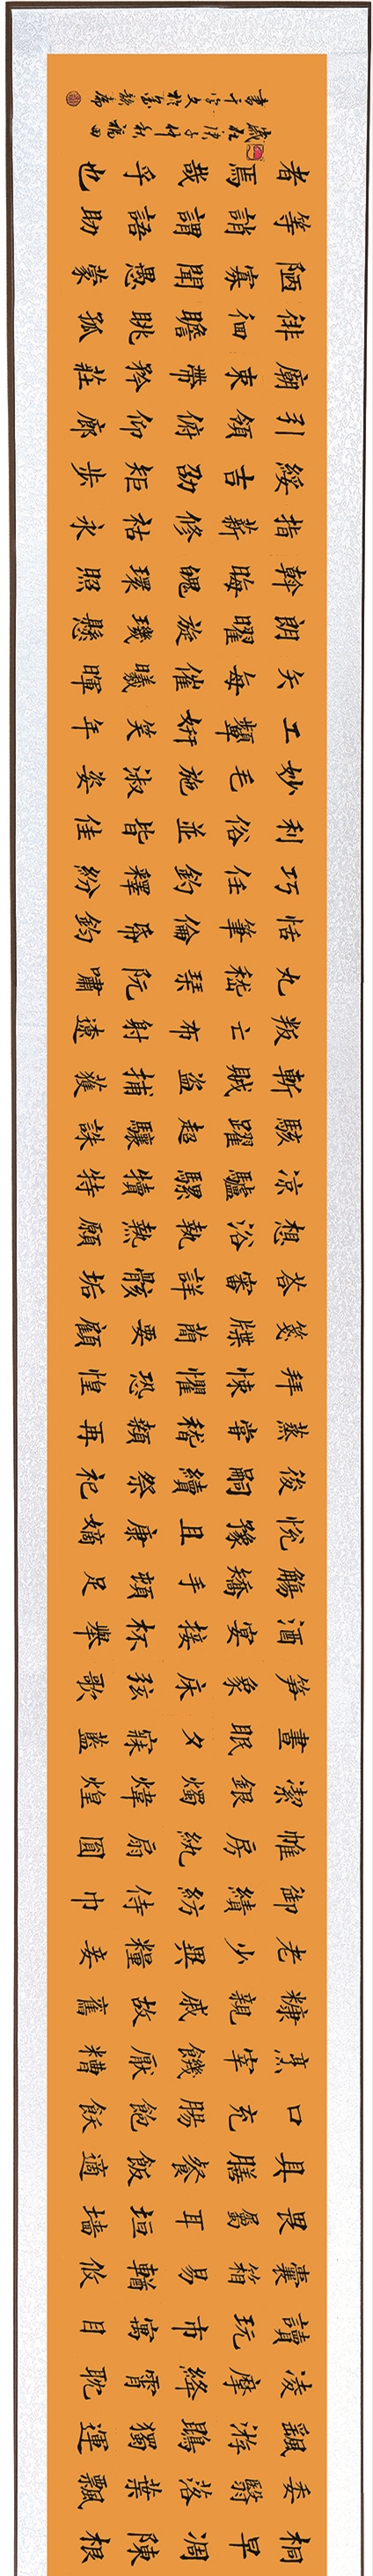 桐早凋陳根
委翳落葉飄
颻游鵾獨運
凌摩絳霄耽
讀玩市寓目
囊箱易輶攸
畏屬耳垣墻
具膳餐飯適
口充腸飽飫
烹宰饑厭糟
糠親戚故舊
老少異糧妾
御績紡侍巾
帷房紈扇圓
潔銀燭煒煌
晝眠夕寐藍
笋象床弦歌
酒宴接杯舉
觴矯手頓足
悅豫且康嫡
後嗣續祭祀
蒸嘗稽顙再
拜悚懼恐惶
箋牒簡要顧
荅審詳骸垢
想浴執熱願
凉驢騾犢特
駭躍超驤誅
斬賊盜捕獲
叛亡布射遼
丸嵇琴阮嘯
恬筆倫帋鈞
巧任釣釋紛
利俗並皆佳
妙毛施淑姿
工顰妍笑年
矢每催曦暉
朗曜旋璣懸
斡晦魄環照
指薪修祜永
綏吉劭矩步
引領俯仰廊
廟束帶矜莊
徘徊瞻眺孤
陋寡聞愚蒙
等誚謂語助
者焉哉乎也
歲在庚子仲秋福田
書千字文於